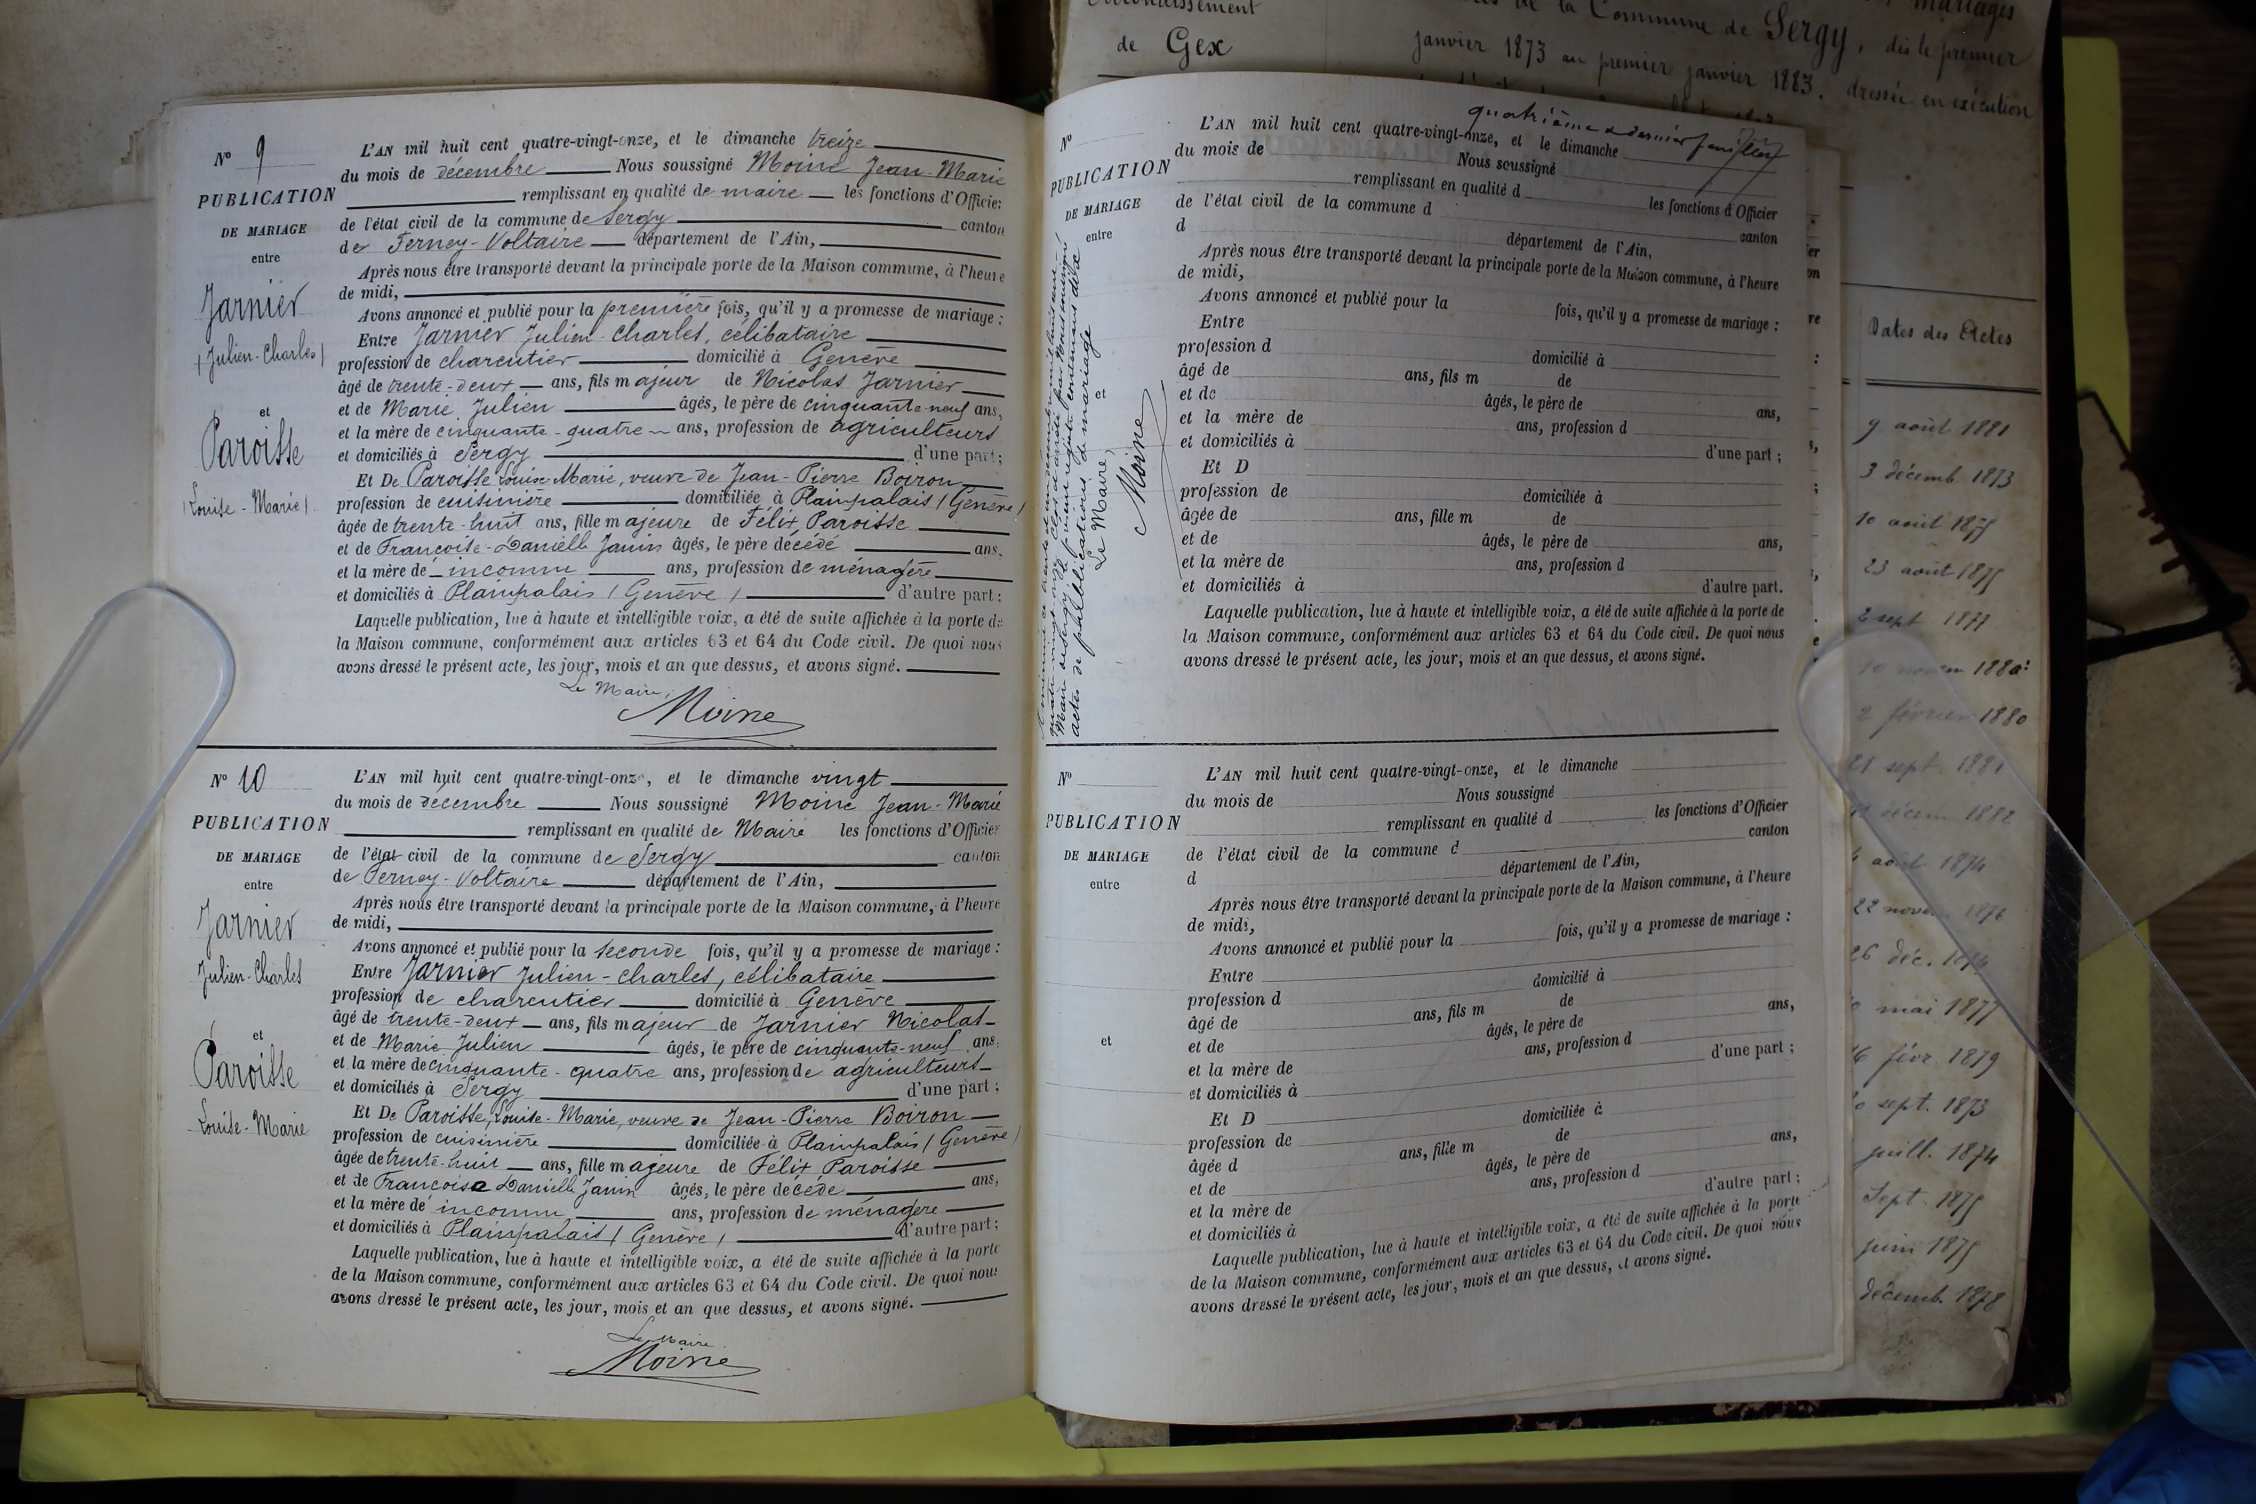 Nº 9
PUBLICATION
DE MARIAGE
entre
Jarnier
(Julien-Charles)
et
Paroisse
(Louise-Marie)
L'AN mil huit cent quatre-vingt-onze, et le dimanche treize
du mois de décembre Nous soussigné Moine Jean-Marie
remplissant en qualité de maire les fonctions d'Officier
de l'état civil de la commune de Sergy canton
de Ferney-Voltaire département de l'Ain,
Après nous être transporté devant la principale porte de la Maison commune, à l'heure
de midi,
Avons annoncé et publié pour la première fois, qu'il y a promesse de mariage :
Entre Jarnier Julien-Charles, célibataire
profession de charcutier domicilié à Genève
âgé de trente-deux ans, fils majeur de Nicolas Jarnier
et de Marie Julien âgés, le père de cinquante-neuf ans,
et la mère de cinquante-quatre ans, profession de agriculteurs
et domiciliés à Sergy d'une part ;
Et De Paroisse Louise Marie, veuve de Jean-Pierre Boiron
profession de cuisinière domiciliée à Plainpalais (Genève)
âgée de trente-huit ans, fille majeure de Félix Paroisse
et de Françoise-Danielle Janin âgés, le père décédé ans,
et la mère de inconnu ans, profession de ménagère
et domiciliés à Plainpalais (Genève) d'autre part ;
Laquelle publication, lue à haute et intelligible voix, a été de suite affichée à la porte de
la Maison commune, conformément aux articles 63 et 64 du Code civil. De quoi nous
avons dressé le présent acte, les jour, mois et an que dessus, et avons signé.
Le Maire,
Moine
Nº 10
PUBLICATION
DE MARIAGE
entre
Jarnier
Julien-Charles
et
Paroisse
Louise-Marie
L'AN mil huit cent quatre-vingt-onze, et le dimanche vingt
du mois de décembre Nous soussigné Moine Jean-Marie
remplissant en qualité de Maire les fonctions d'Officier
de l'état civil de la commune de Sergy canton
de Ferney-Voltaire département de l'Ain,
Après nous être transporté devant la principale porte de la Maison commune, à l'heure
de midi,
Avons annoncé et publié pour la seconde fois, qu'il y a promesse de mariage :
Entre Jarnier Julien-Charles, célibataire
profession de charcutier domicilié à Genève
âgé de trente-deux ans, fils majeur de Jarnier Nicolas
et de Marie Julien âgés, le père de cinquante-neuf ans,
et la mère de cinquante-quatre ans, profession de agriculteurs
et domiciliés à Sergy d'une part ;
Et De Paroisse, Louise-Marie, veuve de Jean-Pierre Boiron
profession de cuisinière domiciliée à Plainpalais (Genève)
âgée de trente-huit ans, fille majeure de Félix Paroisse
et de Françoise Danielle Janin âgés, le père décédé ans,
et la mère de inconnu ans, profession de ménagère
et domiciliés à Plainpalais (Genève) d'autre part ;
Laquelle publication, lue à haute et intelligible voix, a été de suite affichée à la porte
de la Maison commune, conformément aux articles 63 et 64 du Code civil. De quoi nous
avons dressé le présent acte, les jour, mois et an que dessus, et avons signé.
Le Maire
Moine
quatrième et dernier feuillet
Nº
PUBLICATION
DE MARIAGE
entre
et
actes de publications de mariage
Le Maire,
Moine
L'AN mil huit cent quatre-vingt-onze, et le dimanche
du mois de Nous soussigné
remplissant en qualité d les fonctions d'Officier
de l'état civil de la commune d canton
d département de l'Ain,
Après nous être transporté devant la principale porte de la Maison commune, à l'heure
de midi,
Avons annoncé et publié pour la fois, qu'il y a promesse de mariage :
Entre
profession d domicilié à
âgé de ans, fils m de
et de âgés, le père de ans,
et la mère de ans, profession d
et domiciliés à d'une part ;
Et D
profession de domiciliée à
âgée de ans, fille m de
et de âgés, le père de ans,
et la mère de ans, profession d
et domiciliés à d'autre part.
Laquelle publication, lue à haute et intelligible voix, a été de suite affichée à la porte de
la Maison commune, conformément aux articles 63 et 64 du Code civil. De quoi nous
avons dressé le présent acte, les jour, mois et an que dessus, et avons signé.
Nº
PUBLICATION
DE MARIAGE
entre
et
L'AN mil huit cent quatre-vingt-onze, et le dimanche
du mois de Nous soussigné
remplissant en qualité d les fonctions d'Officier
de l'état civil de la commune d canton
d département de l'Ain,
Après nous être transporté devant la principale porte de la Maison commune, à l'heure
de midi,
Avons annoncé et publié pour la fois, qu'il y a promesse de mariage :
Entre
profession d domicilié à
âgé de ans, fils m de
et de âgés, le père de ans,
et la mère de ans, profession d
et domiciliés à d'une part ;
Et D
profession de domiciliée à
âgée d ans, fille m de
et de âgés, le père de ans,
et la mère de ans, profession d
et domiciliés à d'autre part ;
Laquelle publication, lue à haute et intelligible voix, a été de suite affichée à la porte
de la Maison commune, conformément aux articles 63 et 64 du Code civil. De quoi nous
avons dressé le présent acte, les jour, mois et an que dessus, et avons signé.
de Gex
mariages
de la Commune de Sergy, dès le premier
janvier 1873 au premier janvier 1883. dressée en exécution
Dates des Actes
9 août 1881
3 décemb. 1873
10 août 1875
23 août 1875
2 sept 1877
2 février 1880
21 sept. 1881
août 1874
22 novem 1876
26 déc.
mai 1877
févr. 1879
sept. 1873
juill. 1874
Sept. 1875
juin 1875
décemb. 1878